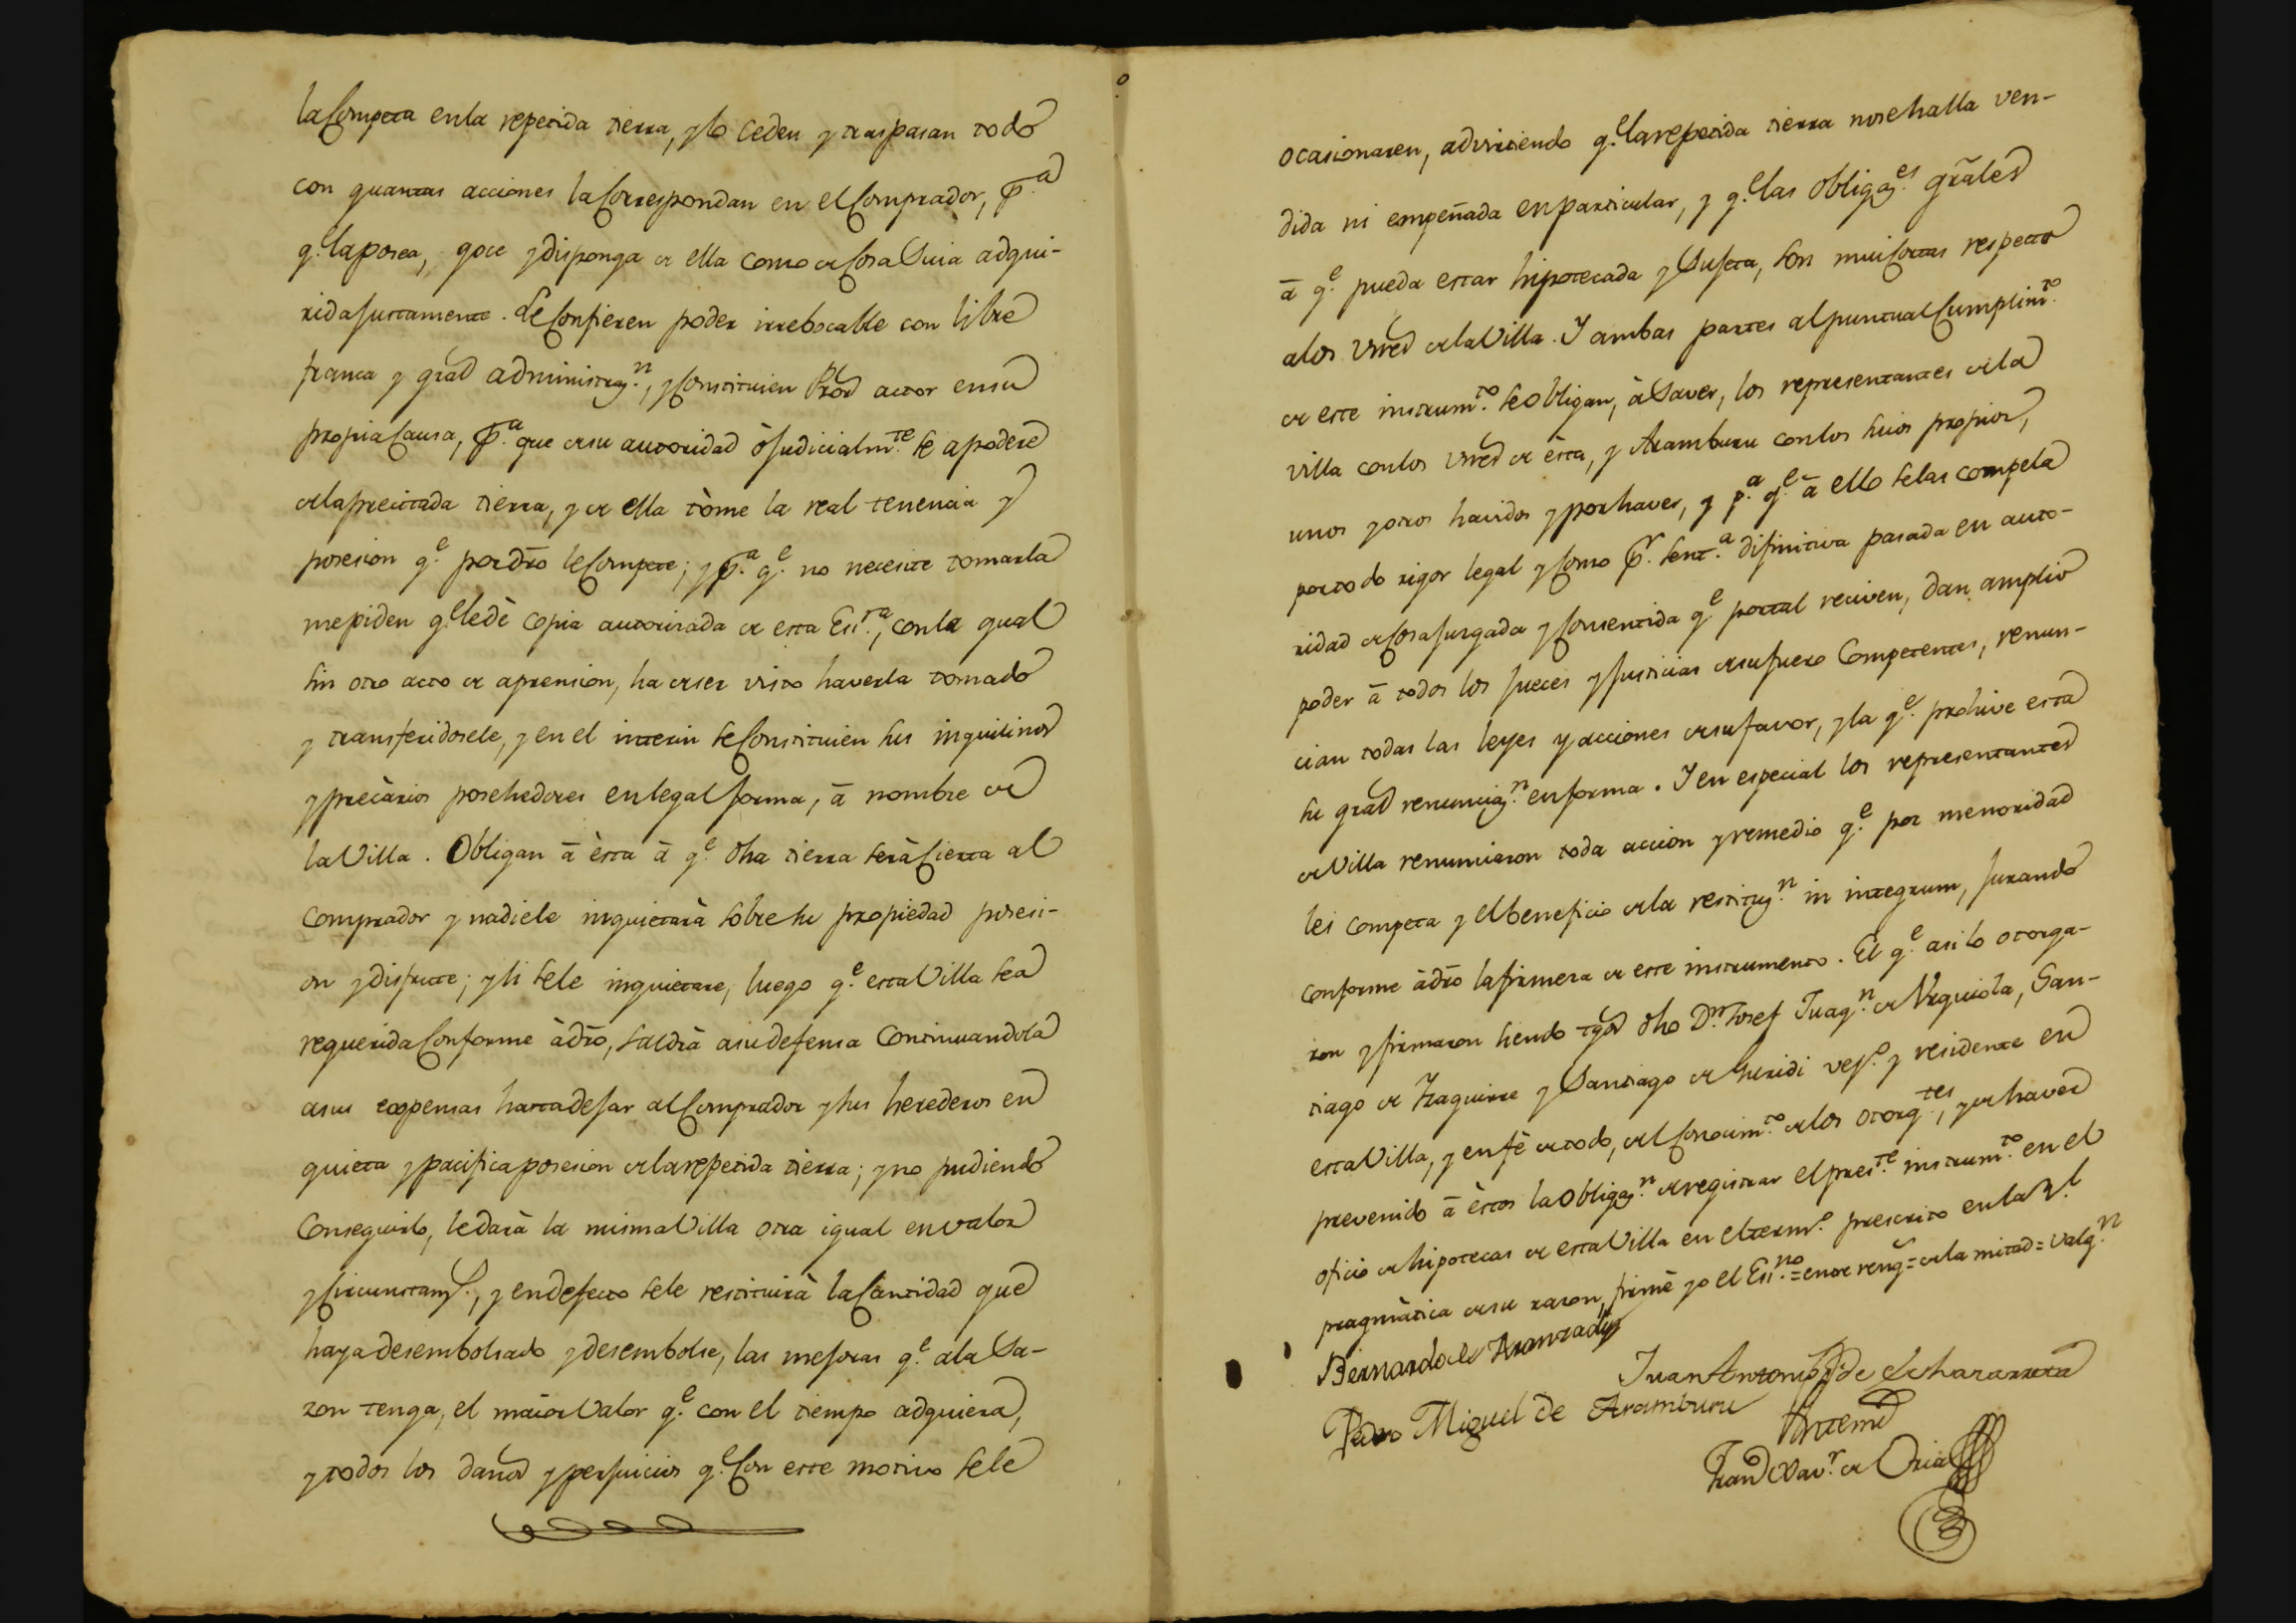 la Competa en la repetida tierra, y lo ceden y traspasan todo
con quantas acciones la Correspondan en el Comprador, p.ª
q.e la posea, goce y disponga de ella como de Cosa Suia adqui-
rida justamente. Le Confieren poder irrebocable con libre
franca y gral administraz.n, y Constituien Pror actor en su
propia Causa, p.ª que de su autoridad ò judicialm.te se apodere
de la precitada tierra, y de ella tòme la real tenencia y
posesion q.e por dro le Compete; y p.ª q.e no necesite tomarla
me piden q.e le dè copia autorizada de esta Esc.ra, con la qual
sin otro acto de aprension, ha de ser visto haverla tomado
y transferidosele, y en el interin se Constituien sus inquilinos
y precàrios posehedores en legal forma, à nombre de
la Villa. Obligan à èsta à q.e dha tierra serà Cierta al
comprador y nadie le inquietarà sobre su propiedad posesi-
on y disfrute; y si se le inquietare, luego q.e esta Villa sea
requerida Conforme àdro, saldrà a su defensa Continuandola
a sus expensas hasta dejar al Comprador y sus herederos en
quieta y pacifica posesion de la repetida tierra; y no pudiendo
Conseguirlo, le darà la misma Villa otra igual en valor
y Circunstanz.s, y en defecto se le restituirà la Cantidad que
haya desembolsado y desembolse, las mejoras q.e a la Sa-
zon tenga, el maior Valor q.e con el tiempo adquiera,
y todos los daños y perjuicios q.e Con este motivo se le
ocasionaren, advirtiendo q.e la repetida tierra no se halla ven-
dida ni empeñada en particular, y q.e las obligaz.es grales
à q.e pueda estar hipotecada y Sujeta, son mui Cortas respecto
a los vnes de la Villa. Y ambas partes al puntual Cumplim.to
de este instrum.to se obligan, à Saver, los representantes de la
villa con los vnes de èsta, y Aramburu con los suios propios,
unos y otros havidos y por haver, y p.ª q.e à ello se las compela
por todo rigor legal y Como p.r sent.ª difinitiva pasada en auto-
ridad de Cosa juzgada y Consentida q.e por tal reciven, dan amplio
poder à todos los jueces y justicias de su fuero Competentes, renun-
cian todas las leyes y acciones de su favor, y la q.e prohive esta
su gral renunciaz.n en forma. Y en especial los representantes
de Villa renunciaron toda accion y remedio q.e por menoridad
les competa y el beneficio de la restituz.n in integrum, jurando
conforme àdro la firmeza de este instrumento. El q.e asi lo otorga-
ron y firmaron siendo tgos dho D.n Josef Juaq.n de Urquiola, San-
tiago de Izaguirre y Santiago de Iuridi vez.s y residente en
esta Villa, y en fè de todo, del Conocim.to de los otorg.tes, y de haver
prevenido à èstos la Obligaz.n de registrar el pres.te instrum.to en el
oficio de hipotecas de esta Villa en el term.o prescrito en la R.l
pragmàtica de su razon, firmè yo el Ess.no = entre reng.s = de la mitad = valg.n
Bernardo de Aranzadi
Juan Antonio de Echazarreta
Pedro Miguel de Aramburu
Ante mi
Fran.co Xav.r de Oria